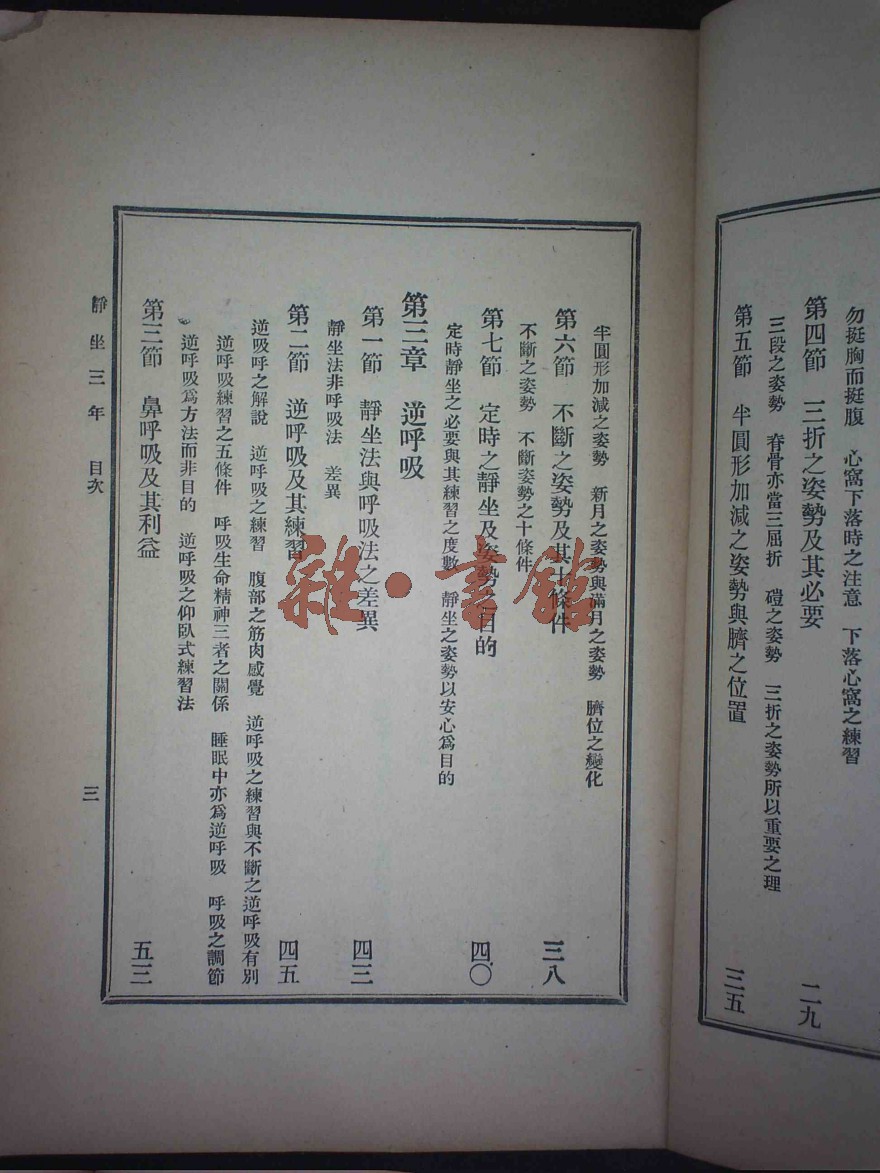 勿挺胸而挺腹　心窩下落時之注意　下落心窩之練習
第四節　三折之姿勢及其必要　二九
三段之姿勢　脊骨亦當三屈折　磴之姿勢　三折之姿勢所以重要之理
第五節　半圓形加減之姿勢與臍之位置　三五
半圓形加減之姿勢　新月之姿勢與滿月之姿勢　臍位之變化
第六節　不斷之姿勢及其十條件　三八
不斷之姿勢　不斷姿勢之十條件
第七節　定時之靜坐及姿勢之目的　四〇
定時靜坐之必要與其練習之度數　靜坐之姿勢以安心爲目的
第三章　逆呼吸
第一節　靜坐法與呼吸法之差異　四三
靜坐法非呼吸法　差異
第二節　逆呼吸及其練習　四五
逆吸呼之解說　逆呼吸之練習　腹部之筋肉感覺　逆呼吸之練習與不斷之逆呼吸有別
逆呼吸練習之五條件　呼吸生命精神三者之關係　睡眠中亦爲逆呼吸　呼吸之調節
逆呼吸爲方法而非目的　逆呼吸之仰臥式練習法
第三節　鼻呼吸及其利益　五三
靜坐三年　目次　三
雜·書館